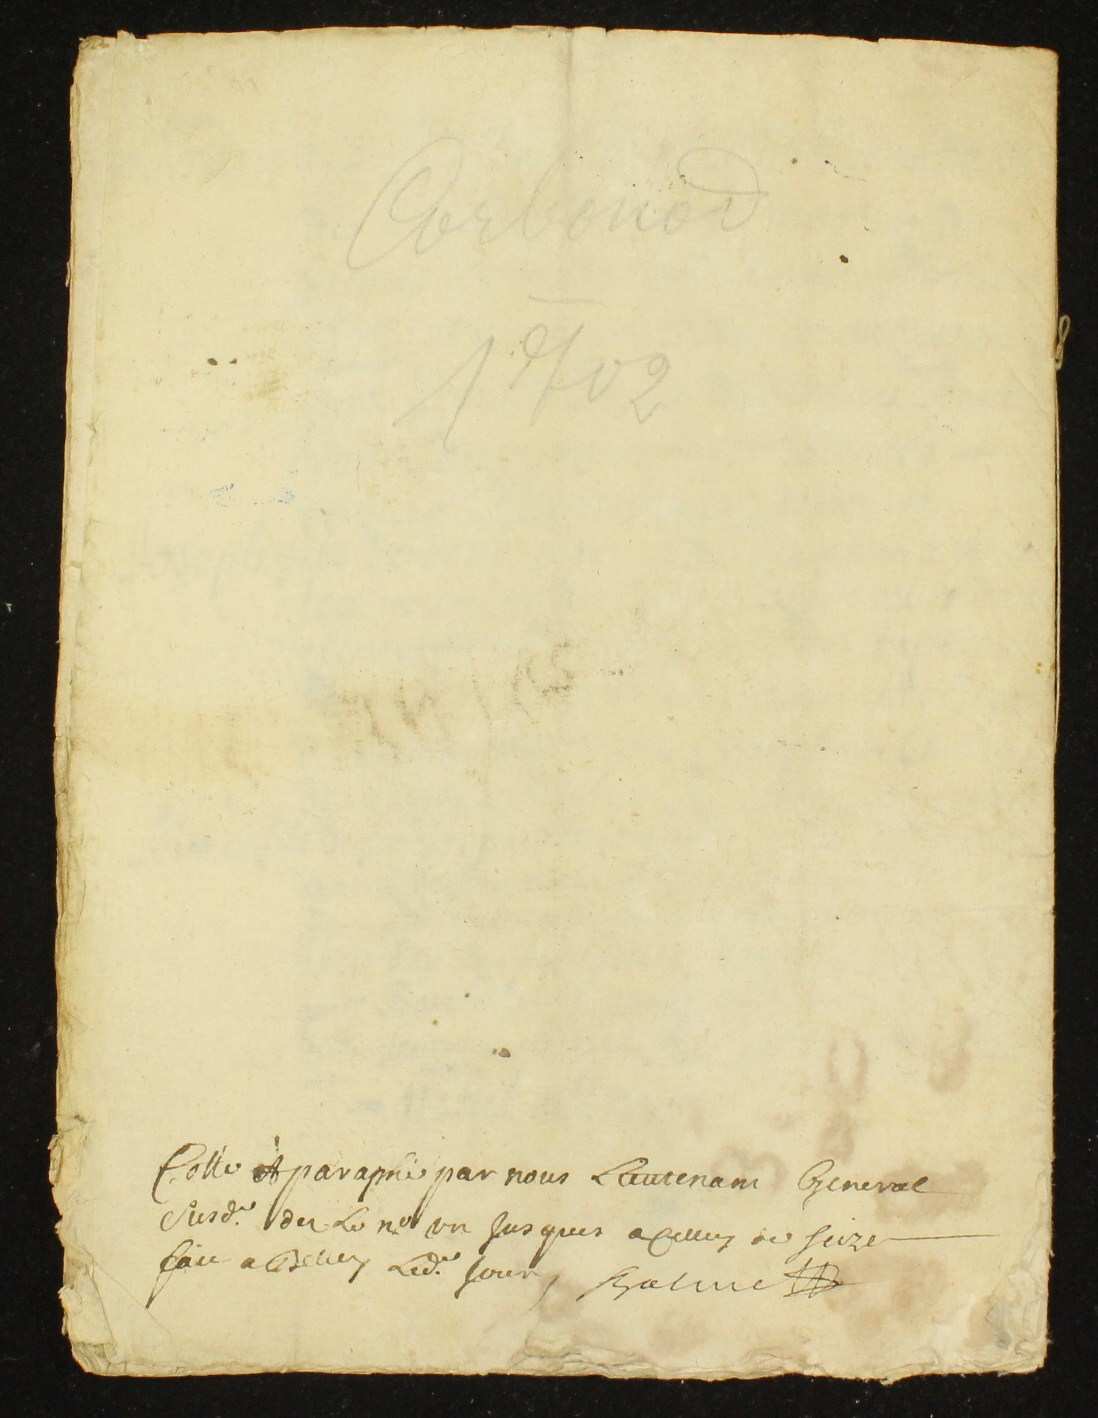 Corbonod
1702
Cotté et paraphé par nous Lieutenant General
susd.t du n.o un jusques a celluy de seize
fait a Belley led.t jour,